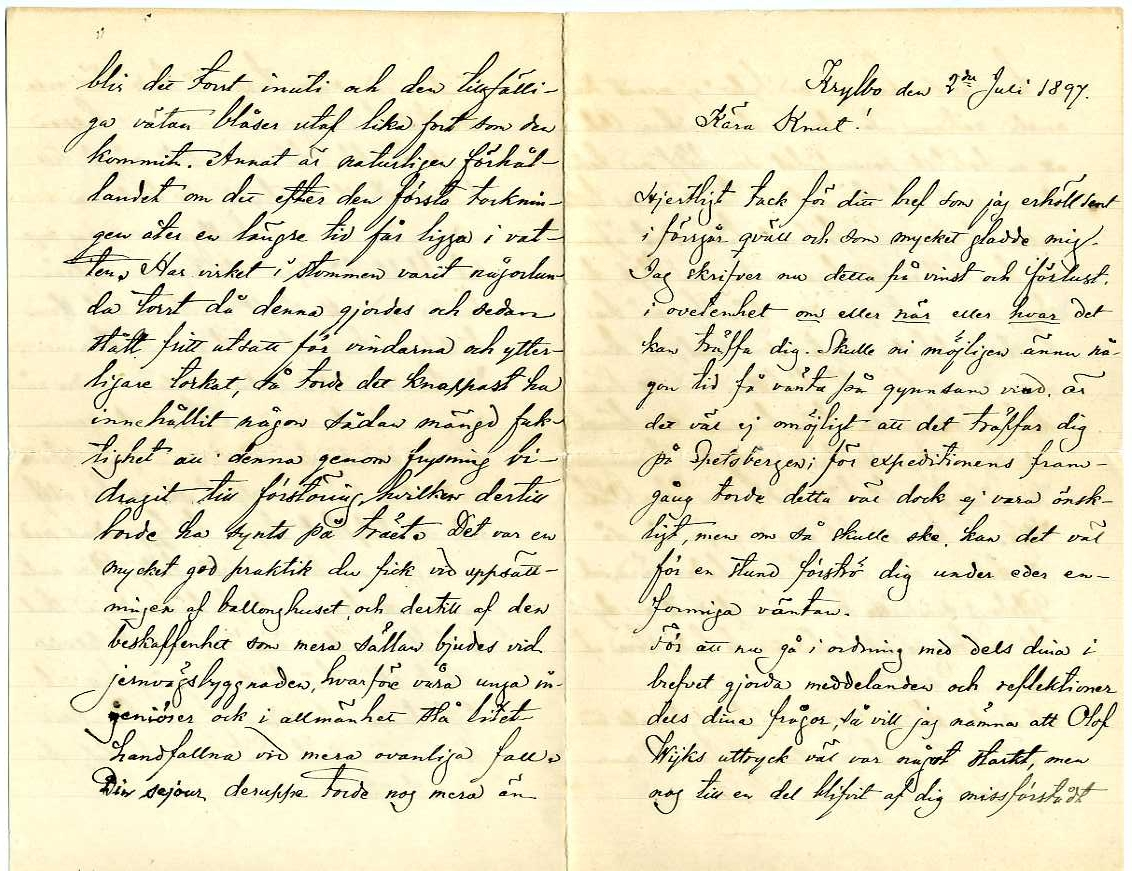 Krylbo den 2dre Juli 1897.
Kära Knut!
Hjertligt tack för ditt bref som jag erhöll sent
i förrgår qväll och som mycket gladde mig.
Jag skrifver nu detta på vinst och förlust,
i ovetenhet om eller när eller hvar det
kan träffa dig. Skulle ni möjligen ännu nå-
gon tid få vänta på gynnsam vind, är
det väl ej omöjligt att det träffar dig
på Spetsbergen; för expeditionens fram-
gång torde detta väl dock ej vara önsk-
ligt, men om så skulle ske, kan det väl
för en stund förströ dig under eder en-
formiga väntan.
För att nu gå i ordning med dels dina i
brefvet gjorda meddelanden och reflektioner
dels dina frågor, så vill jag nämna att Olof
Wijks uttryck väl var något starkt, men
nog till en del blifvit af dig missförstådt
blir det torst inuti och den tillfälli-
ga vätan blåser utaf lika fort som den
kommit. Annat är naturligen förhål-
landet om det efter den första torknin-
gen åter en längre tid får ligga i vat-
ten. Har virket i stommen varit någorlun
da torst då denna gjordes och sedan
stått fritt utsatt för vindarna och ytter-
ligare torkat, så torde det knappast ha
innehållit någon sådan mängd fuk-
tighet att denna genom frysning bi-
dragit till förstöring, hvilken dertill
borde ha synts på träet. Det var en
mycket god praktik du fick vid uppsätt-
ningen af ballonghuset, och dertill af den
beskaffenhet som mera sällan bjudes vid
jernvägsbyggnaden, hvarföre våra unga in-
geniörer ock i allmänhet stå litet
handfallna vid mera ovanliga fall.
Din sejour deruppe torde nog mera än